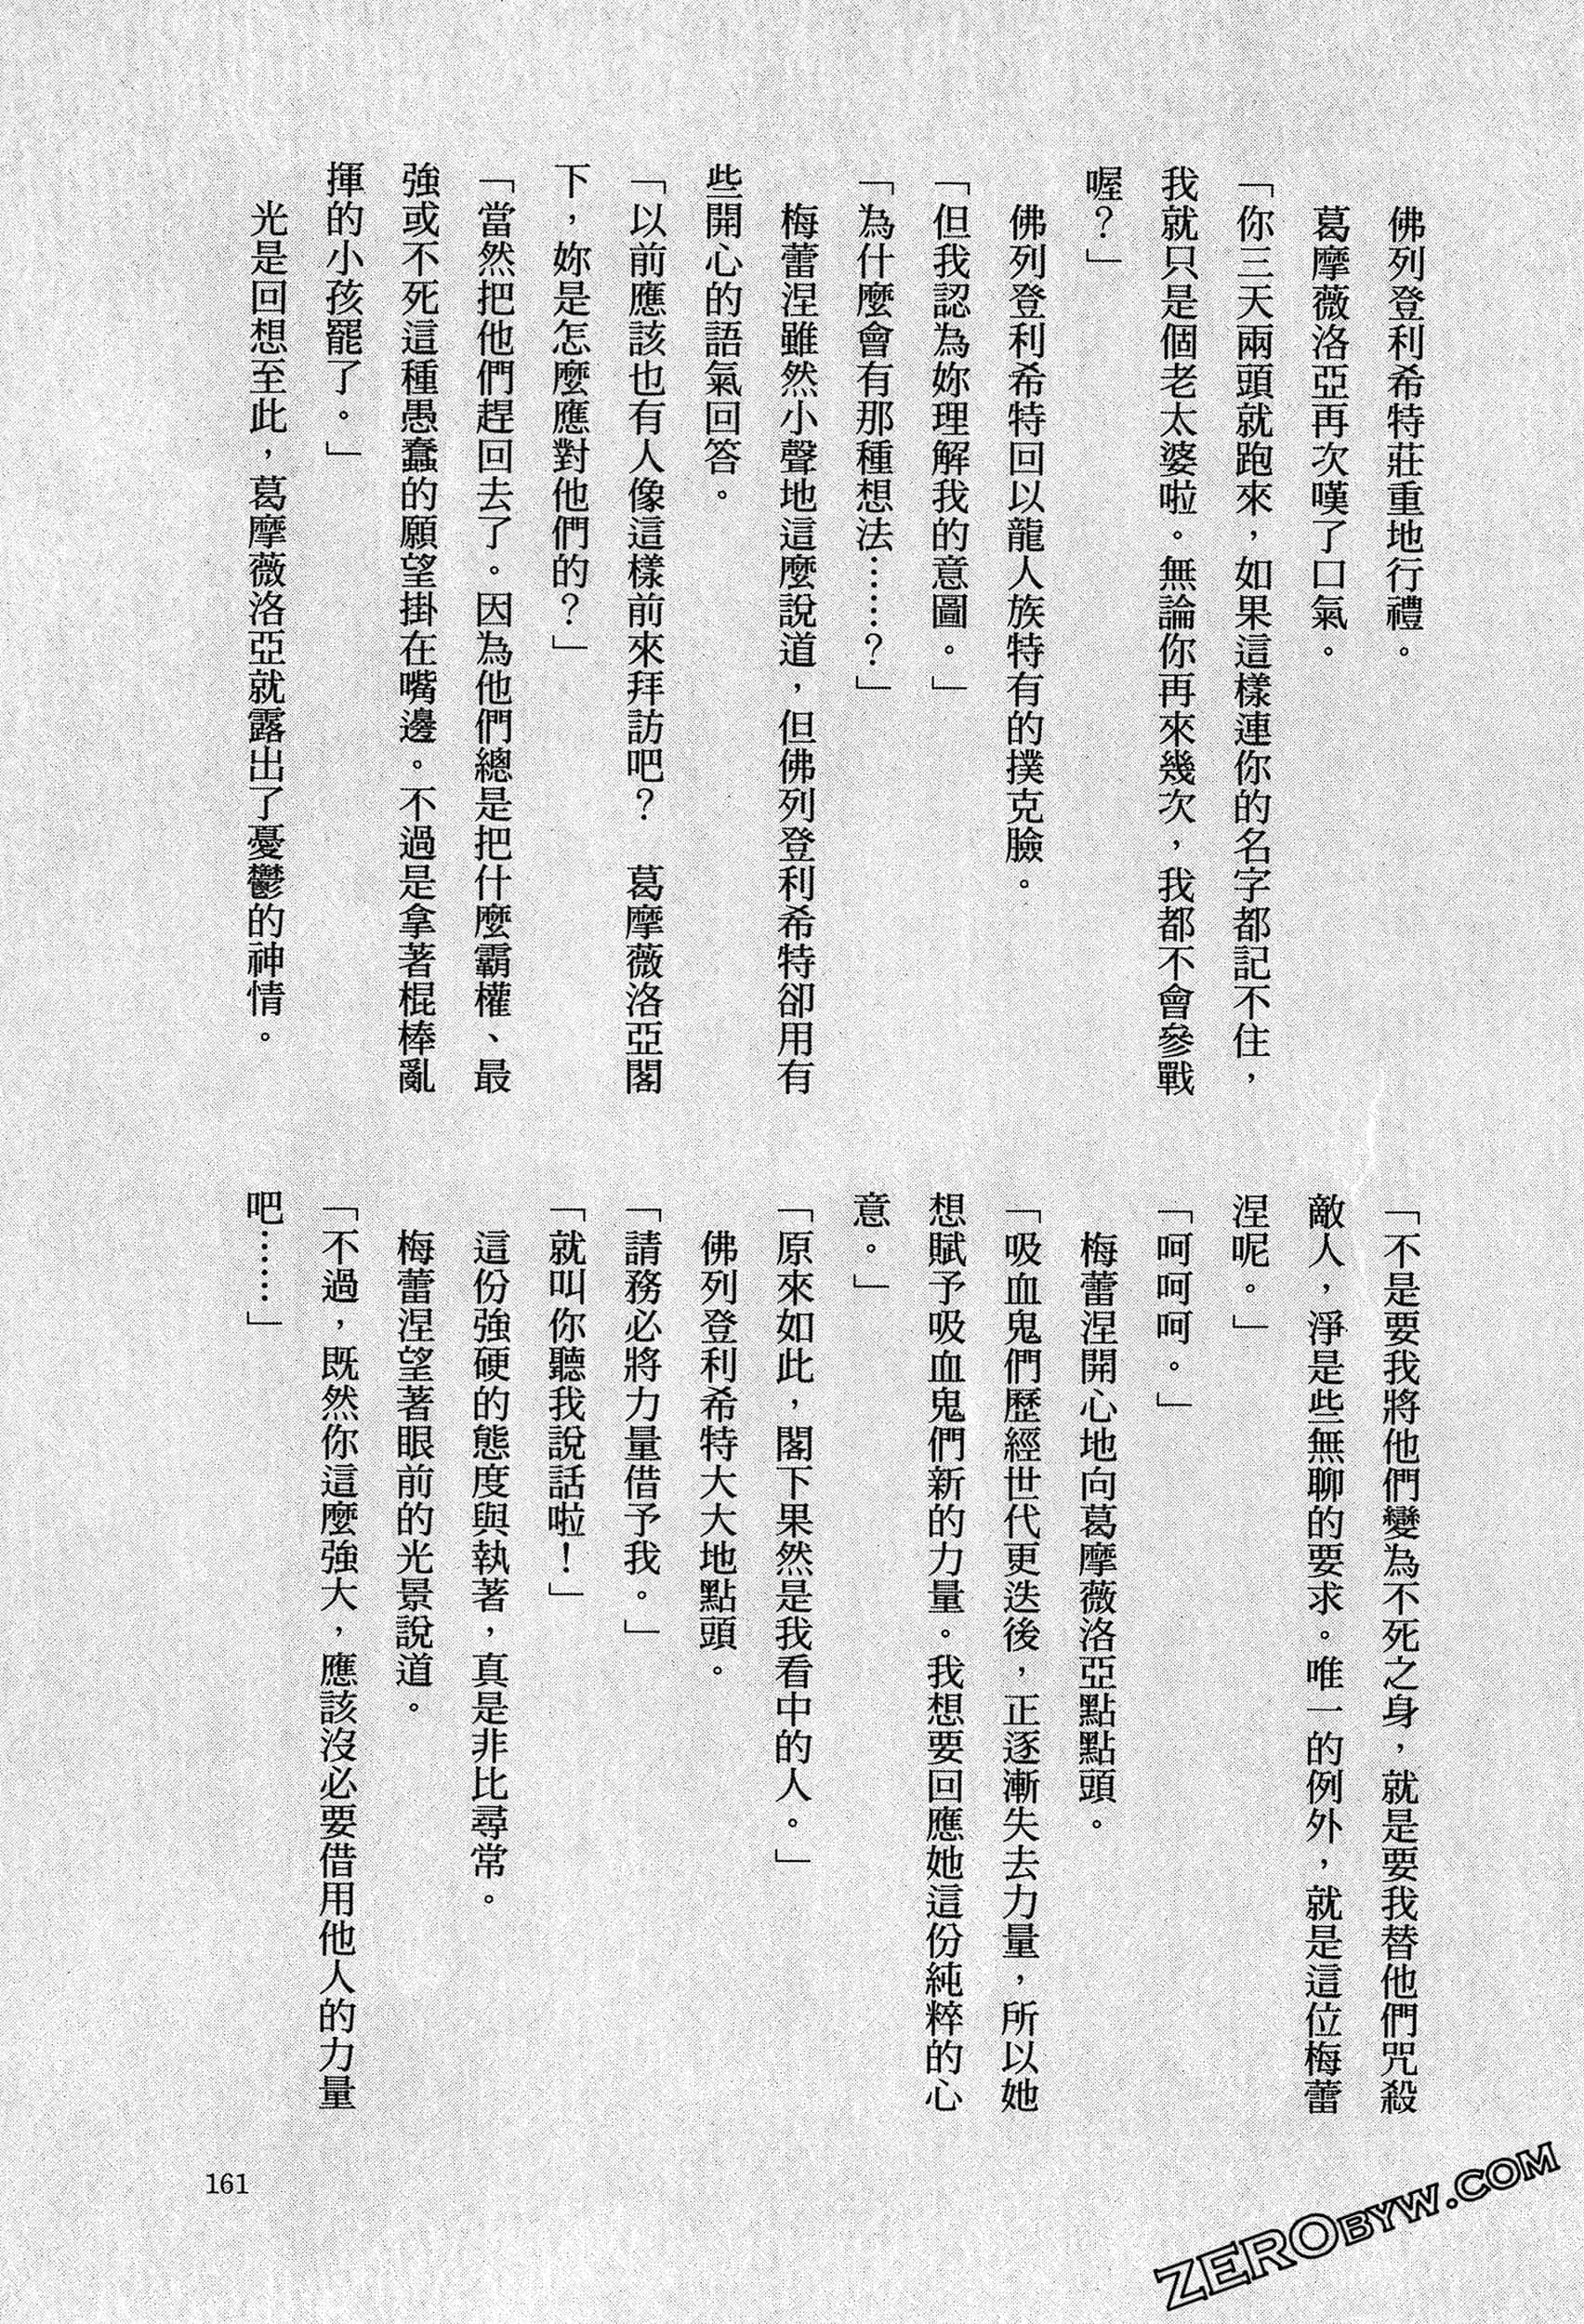 佛列登利希特莊重地行禮。
葛摩薇洛亞再次嘆了口氣。
「你三天兩頭就跑來，如果這樣連你的名字都記不住，
我就只是個老太婆啦。無論你再來幾次，我都不會參戰
喔？」
佛列登利希特回以龍人族特有的撲克臉。
「但我認為妳理解我的意圖。」
「為什麼會有那種想法……？」
梅蕾涅雖然小聲地這麼說道，但佛列登利希特卻用有
些開心的語氣回答。
「以前應該也有人像這樣前來拜訪吧？　葛摩薇洛亞閣
下，妳是怎麼應對他們的？」
「當然把他們趕回去了。因為他們總是把什麼霸權、最
強或不死這種愚蠢的願望掛在嘴邊。不過是拿著棍棒亂
揮的小孩罷了。」
光是回想至此，葛摩薇洛亞就露出了憂鬱的神情。
「不是要我將他們變為不死之身，就是要我替他們咒殺
敵人，淨是些無聊的要求。唯一的例外，就是這位梅蕾
涅呢。」
「呵呵呵。」
梅蕾涅開心地向葛摩薇洛亞點點頭。
「吸血鬼們歷經世代更迭後，正逐漸失去力量，所以她
想賦予吸血鬼們新的力量。我想要回應她這份純粹的心
意。」
「原來如此，閣下果然是我看中的人。」
佛列登利希特大大地點頭。
「請務必將力量借予我。」
「就叫你聽我說話啦！」
這份強硬的態度與執著，真是非比尋常。
梅蕾涅望著眼前的光景說道。
「不過，既然你這麼強大，應該沒必要借用他人的力量
吧……」
161
ZEROBYW.COM